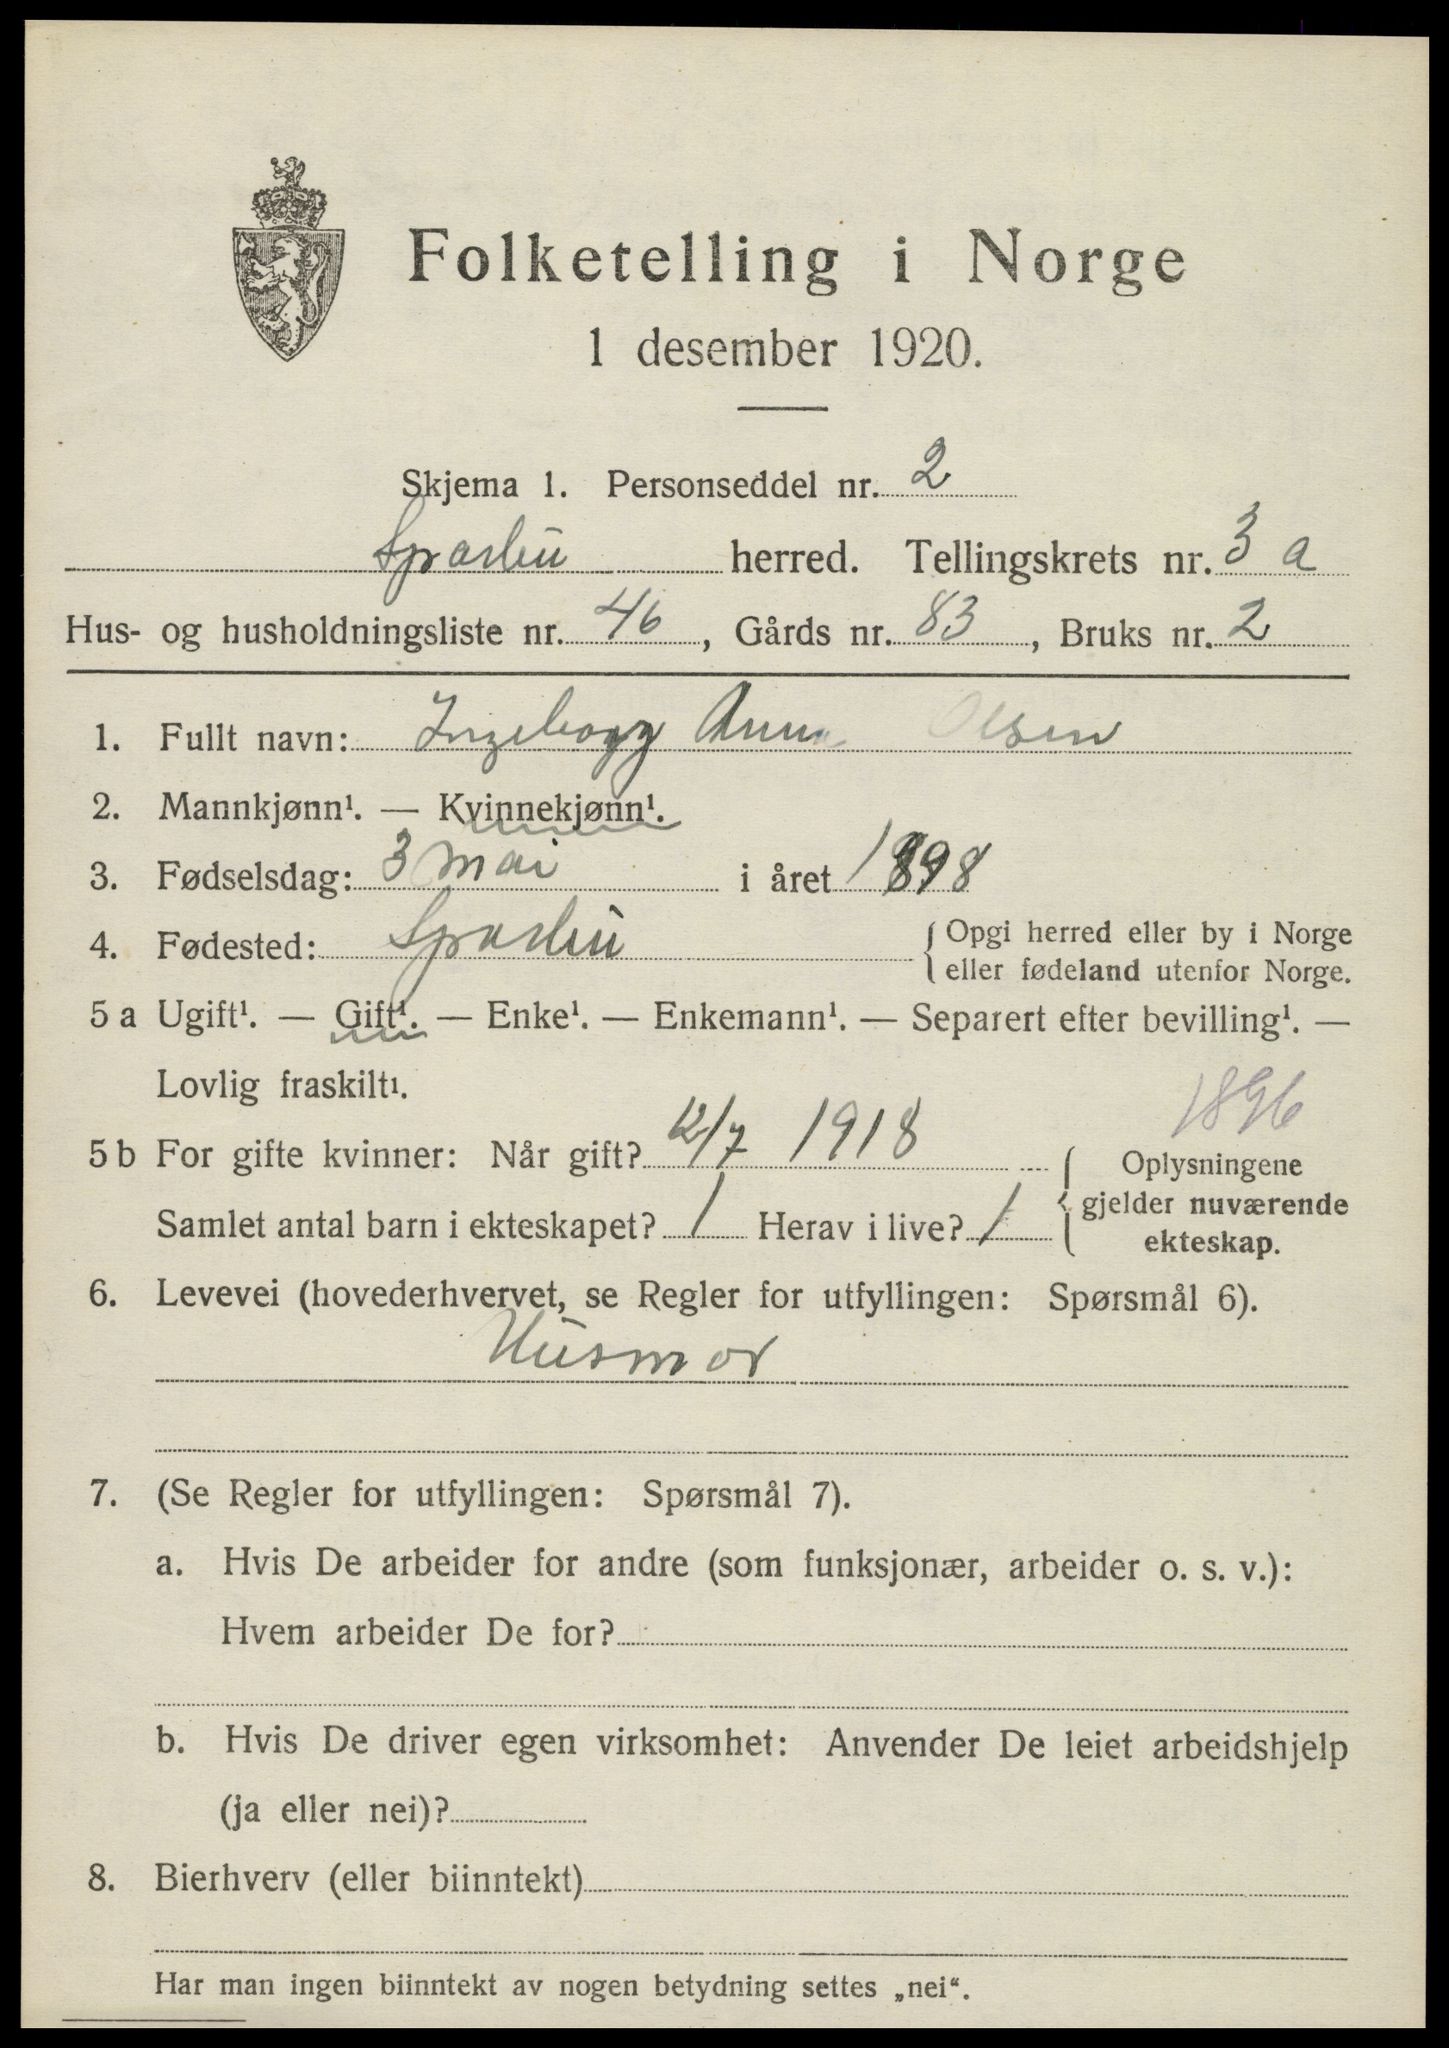 Folketelling i Norge
1 desember 1920.
Skjema 1. Personseddel nr. 2
Sparbu herred. Tellingskrets nr. 3 a
Hus- og husholdningsliste nr. 46, Gårds nr. 83, Bruks nr. 2
1. Fullt navn: Ingeborg Anna Olsen
2. Mannkjønn¹. — Kvinnekjønn¹.
3. Fødselsdag: 3 mai i året 1898
4. Fødested: Sparbu { Opgi herred eller by i Norge
eller fødeland utenfor Norge.
5 a Ugift¹. — Gift¹. — Enke¹. — Enkemann¹. — Separert efter bevilling¹. —
Lovlig fraskilt¹.
1896
5 b For gifte kvinner: Når gift? 12/7 1918 { Oplysningene
gjelder nuværende
ekteskap.
Samlet antal barn i ekteskapet? 1 Herav i live? 1
6. Levevei (hovederhvervet, se Regler for utfyllingen: Spørsmål 6).
Husmor
7. (Se Regler for utfyllingen: Spørsmål 7).
a. Hvis De arbeider for andre (som funksjonær, arbeider o. s. v.):
Hvem arbeider De for?
b. Hvis De driver egen virksomhet: Anvender De leiet arbeidshjelp
(ja eller nei)?
8. Bierhverv (eller biinntekt)
Har man ingen biinntekt av nogen betydning settes „nei“.